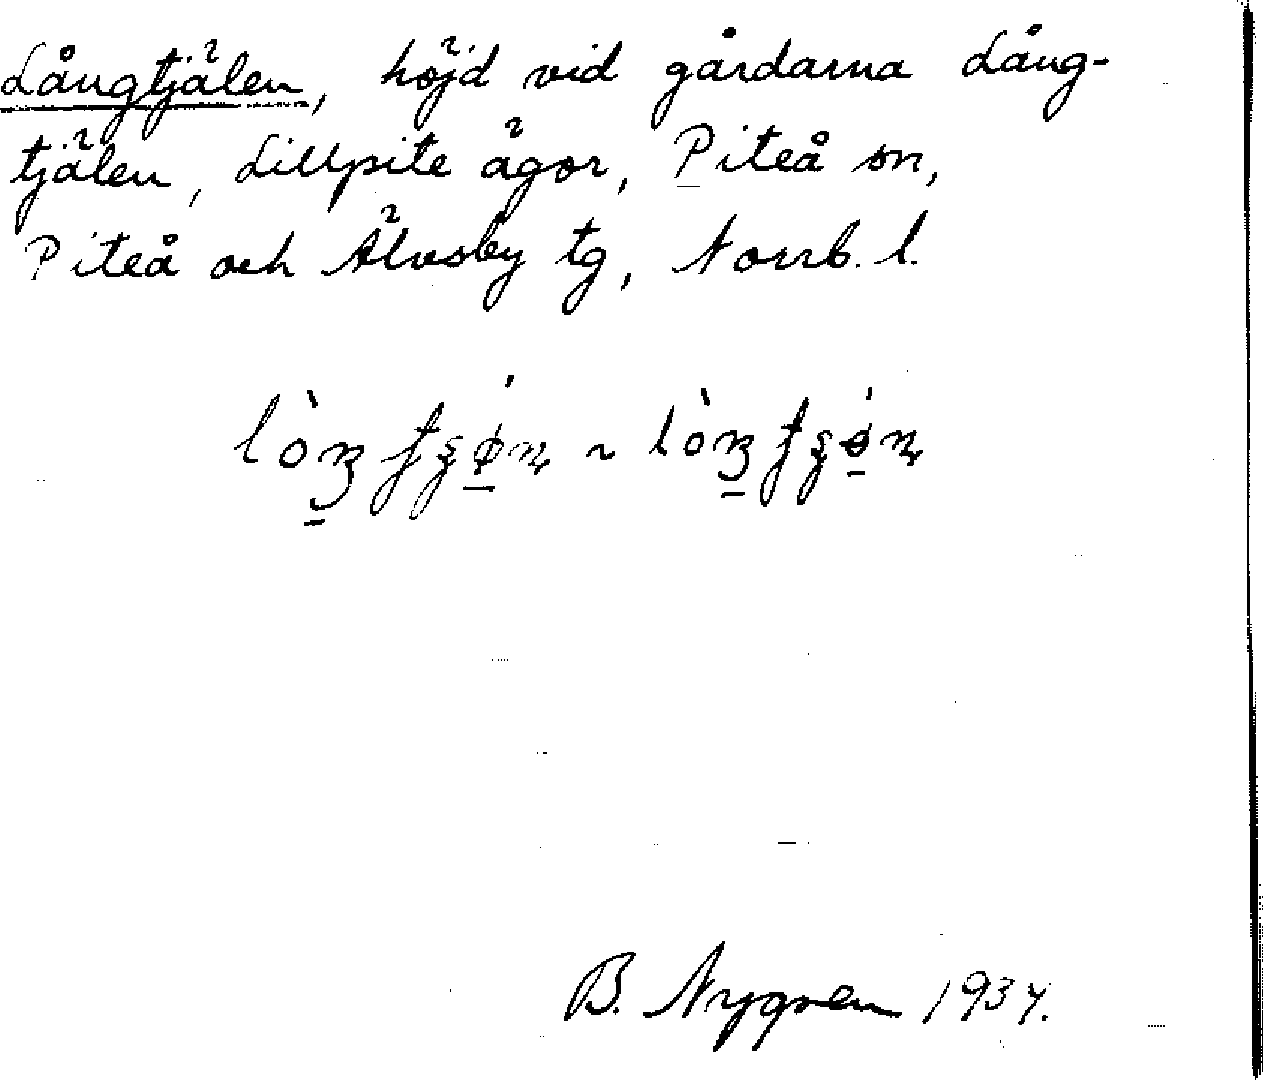 Långtjälen, höjd vid gårdarna Lång-
tjälen, Lillpite ägor, Piteå sn,
Piteå och Älvsby tg, Norrb. l.
B. Nygren 1937.